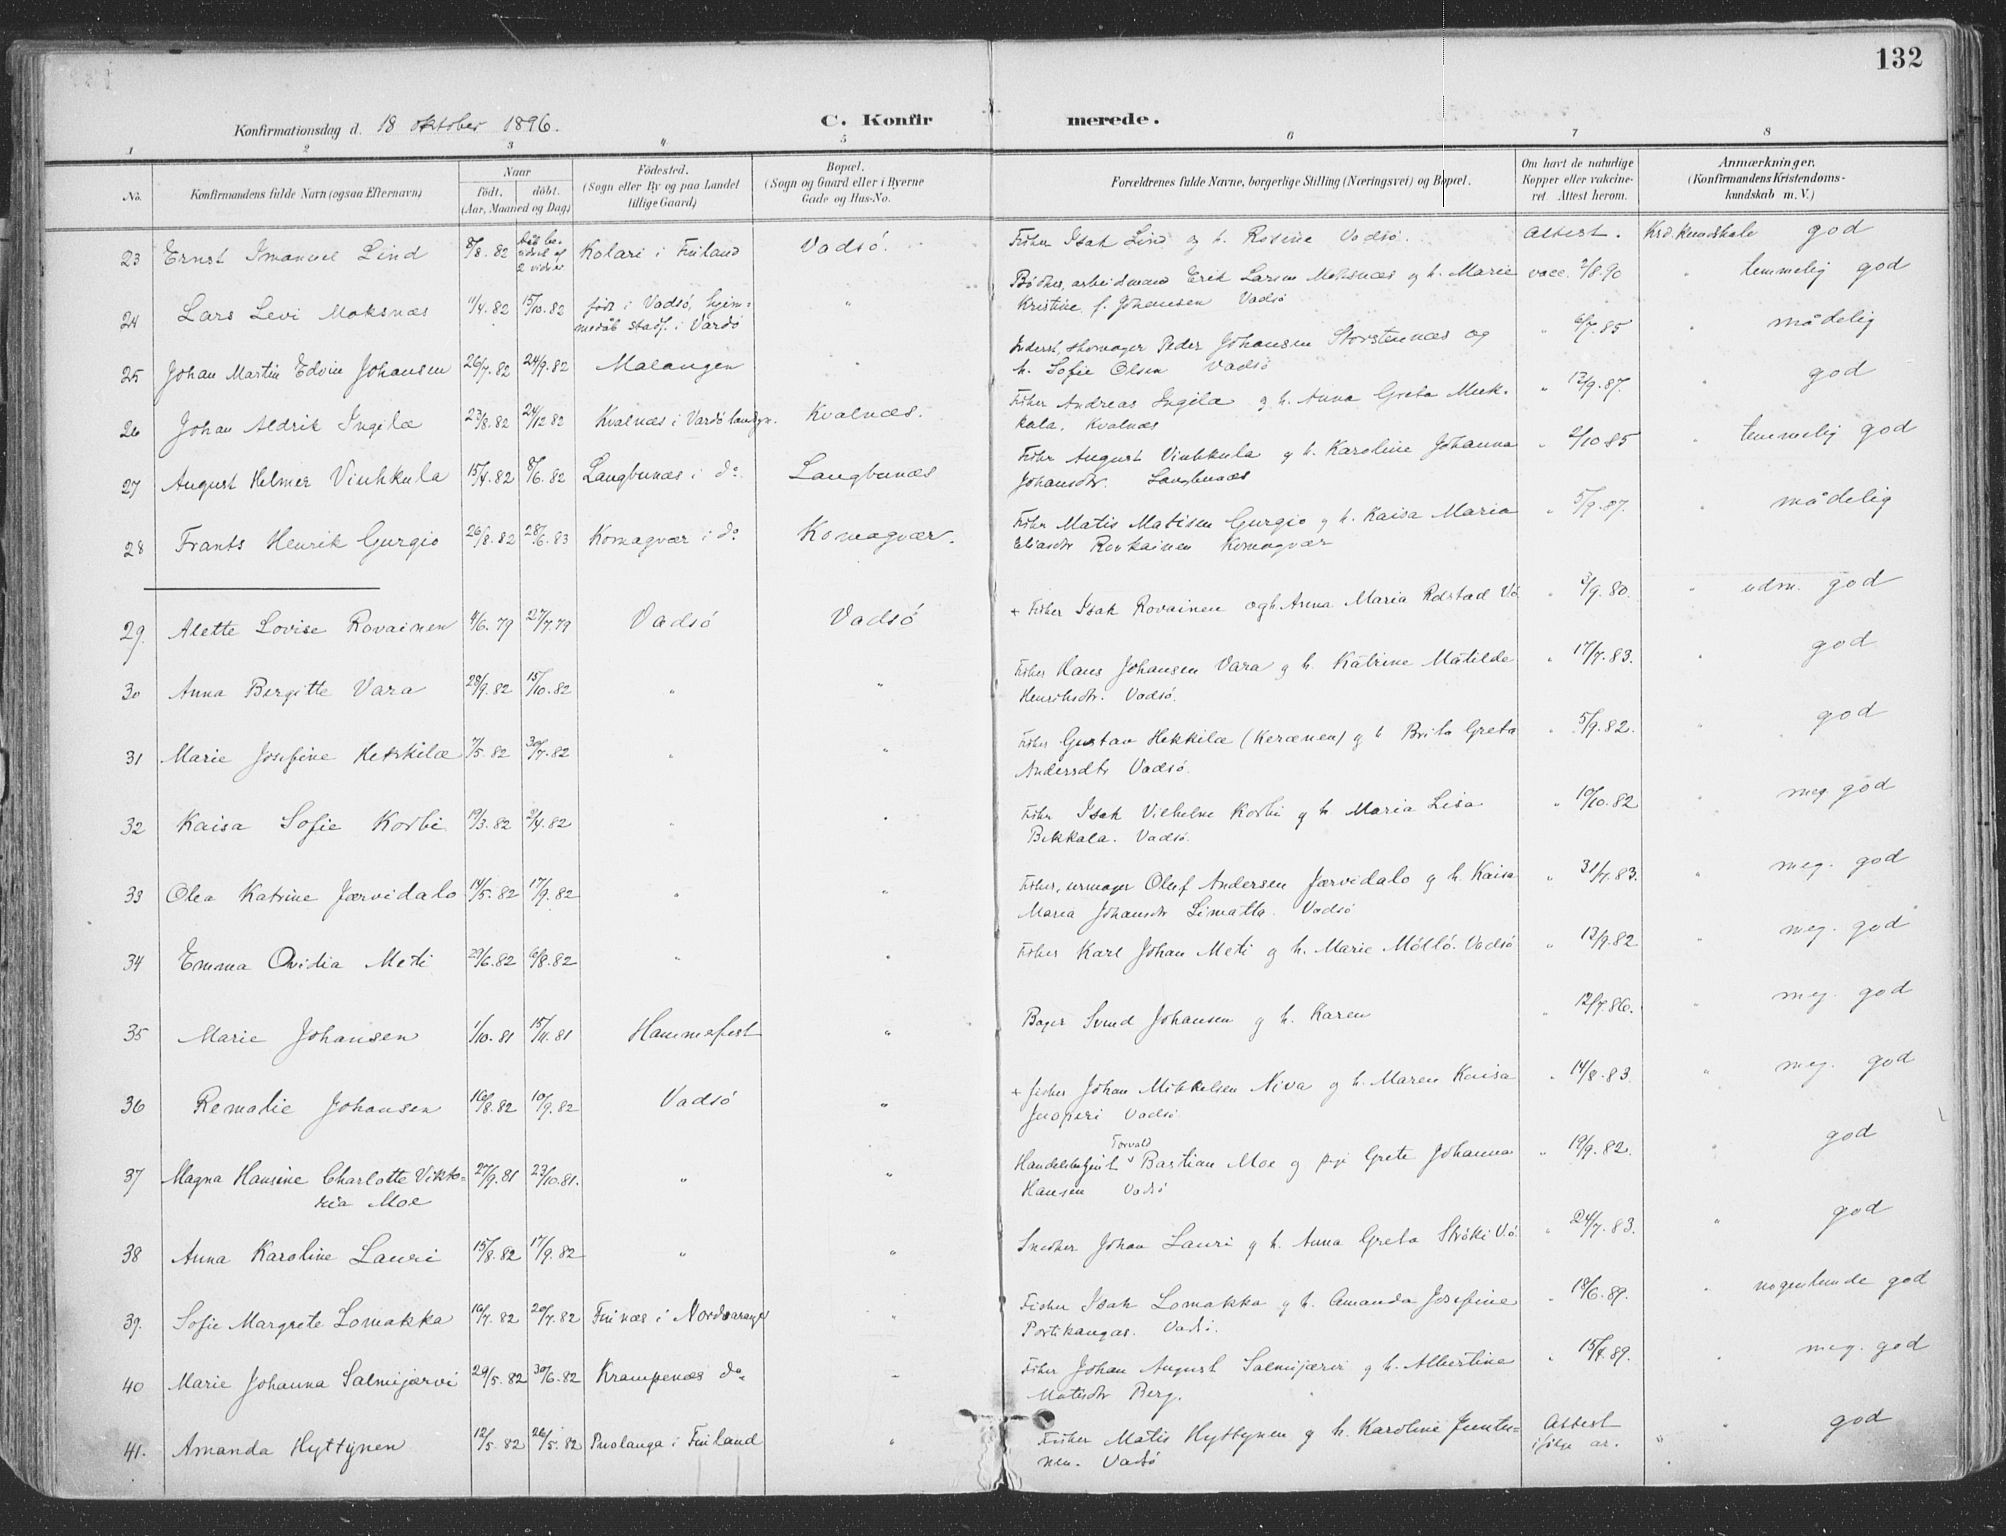 132
Konfirmationsdag d. 18 oktober 1896. C. Konfirmerede.
1 2 3 4 5 6 7 8
No. Konfirmandens fulde Navn (ogsaa Efternavn) Naar født. døbt. (Aar, Maaned og Dag) Fødested. (Sogn eller By og paa Landet tillige Gaard) Bopæl. (Sogn og Gaard eller i Byerne Gade og Hus-No. Forældrenes fulde Navne, borgerlige Stilling (Næringsvei) og Bopæl. Om havt de naturlige Kopper eller vakcineret. Attest herom. Anmærkninger. (Konfirmandens Kristendomskundskab m. V.)
23 Ernst Imanuel Lind 8/8.82 2 vidner Kolari i Finland Vadsö. Fisker Isak Lind og h. Rosine Vadsö. Attest. Krd. kundskab god
24 Lars Levi Moksnæs 11/4.82 15/10.82 föd i Vadsö, hjemmedöb stadf. i Vardö " Bödker, arbeidmand Erik Larsen Moksnæs og h. Marie Kristine f. Johansen Vadsö vacc. 2/8.90 " temmelig god
25 Johan Martin Edvin Johansen 26/7.82 24/9.82 Malangen " Inderst, skomager Peder Johansen Storstennæs og h. Sofie Olsen Vadsö " 6/7.85 " mådelig
26 Johan Aldrik Ingilæ 23/8.82 24/12.82 Kvalnæs i Vardö landsgn. Kvalnæs. Fisker Andreas Ingilæ og h. Anna Greta Mukkala, Kvalnæs " 12/9.87. " god
27 August Helmer Viuhkula 15/4.82 8/6.82 Langbunæs i do. Langbunæs Fisker August Viuhkula og h. Karoline Johanna Johansdtr. Langbunæs " 2/10 85 " temmelig god
28 Frants Henrik Gurgio 26/8.82 28/6.83 Komagvær i do Komagvær. Fisker Matis Matisen Gurgio og h. Kaisa Maria Eliasdtr Rovkainen Komagvær " 5/9.87. " mådelig
29. Alette Lovise Rovainen 4/6.79 27/7.79 Vadsö Vadsö + Fisker Isak Rovainen og h. Anna Maria Rolstad Vö " 3/9.80. " udm. god
30 Anna Bergitte Vara 28/9.82 15/10.82 " " Fisker Hans Johansen Vara og h. Katrine Matilde Henriksdtr. Vadsö. " 17/7.83. " god
31 Marie Josefine Heikkilæ 7/5.82 30/7.82 " " Fisker Gustav Hekkilæ (Kerænen) og h Brita Greta Andersdtr Vadsö. " 5/9.82. " god
32 Kaisa Sofie Korbi 19/3.82 2/4.82 " " Fisker Isak Vilhelm Korbi og h. Maria Lisa Bekkala. Vadsö. " 10/10.82 " meg. god
33 Olea Katrine Jærvidalo 14/5.82 17/9.82 " " Fisker, urmager Oluf Andersen Jærvidalo og h. Kaisa Maria Johansdtr Limatta. Vadsö " 31/7.83. " meg. god
34 Emma Ovidia Meti 29/6.82 6/8.82 " " Fisker Karl Johan Meti og h. Marie Möllö. Vadsö " 13/9.82 " meg. god
35 Marie Johansen 1/10.81 15/11.81 Hammefest " Bager Svend Johansen og h. Karen " 12/7.86. " meg. god
36 Remalie Johansen 16/8.82 10/9.82 Vadsö " + fisker Johan Mikkelsen Niva og h. Maren Kaisa Juoperi Vadsö " 14/8.83. " meg. god
37 Magna Hansine Charlotte Viktoria Moe 27/9.81 23/10.81. " " Handelsbetjent Torvald Bastian Moe og pige Grete Johanna Hansen Vadsö " 19/9.82. " god
38 Anna Karoline Lauri 15/8.82 17/9.82 " " Snedker Johan Lauri og h. Anna Greta Ströki Vö. " 24/7.83. " god
39. Sofie Margrete Lomakka 16/7.82 20/7.82 Finnæs i Nordvaranger " Fisker Isak Lomakka og h. Amanda Josefine Portikangas. Vadsö. " 18/6.89. " nogenlunde god
40 Marie Johanna Salmijærvi 29/5.82 30/6.82 Krampenæs do. " Fisker Johan August Salmijærvi og h. Albertine Matisdtr Berg. " 15/4.89. " meg. god
41. Amanda Hyttynen 12/5.82 26/5.82 Puolanga i Finland " Fisker Matis Hyttynen og h. Karoline Juntunen. Vadsö Attest " god